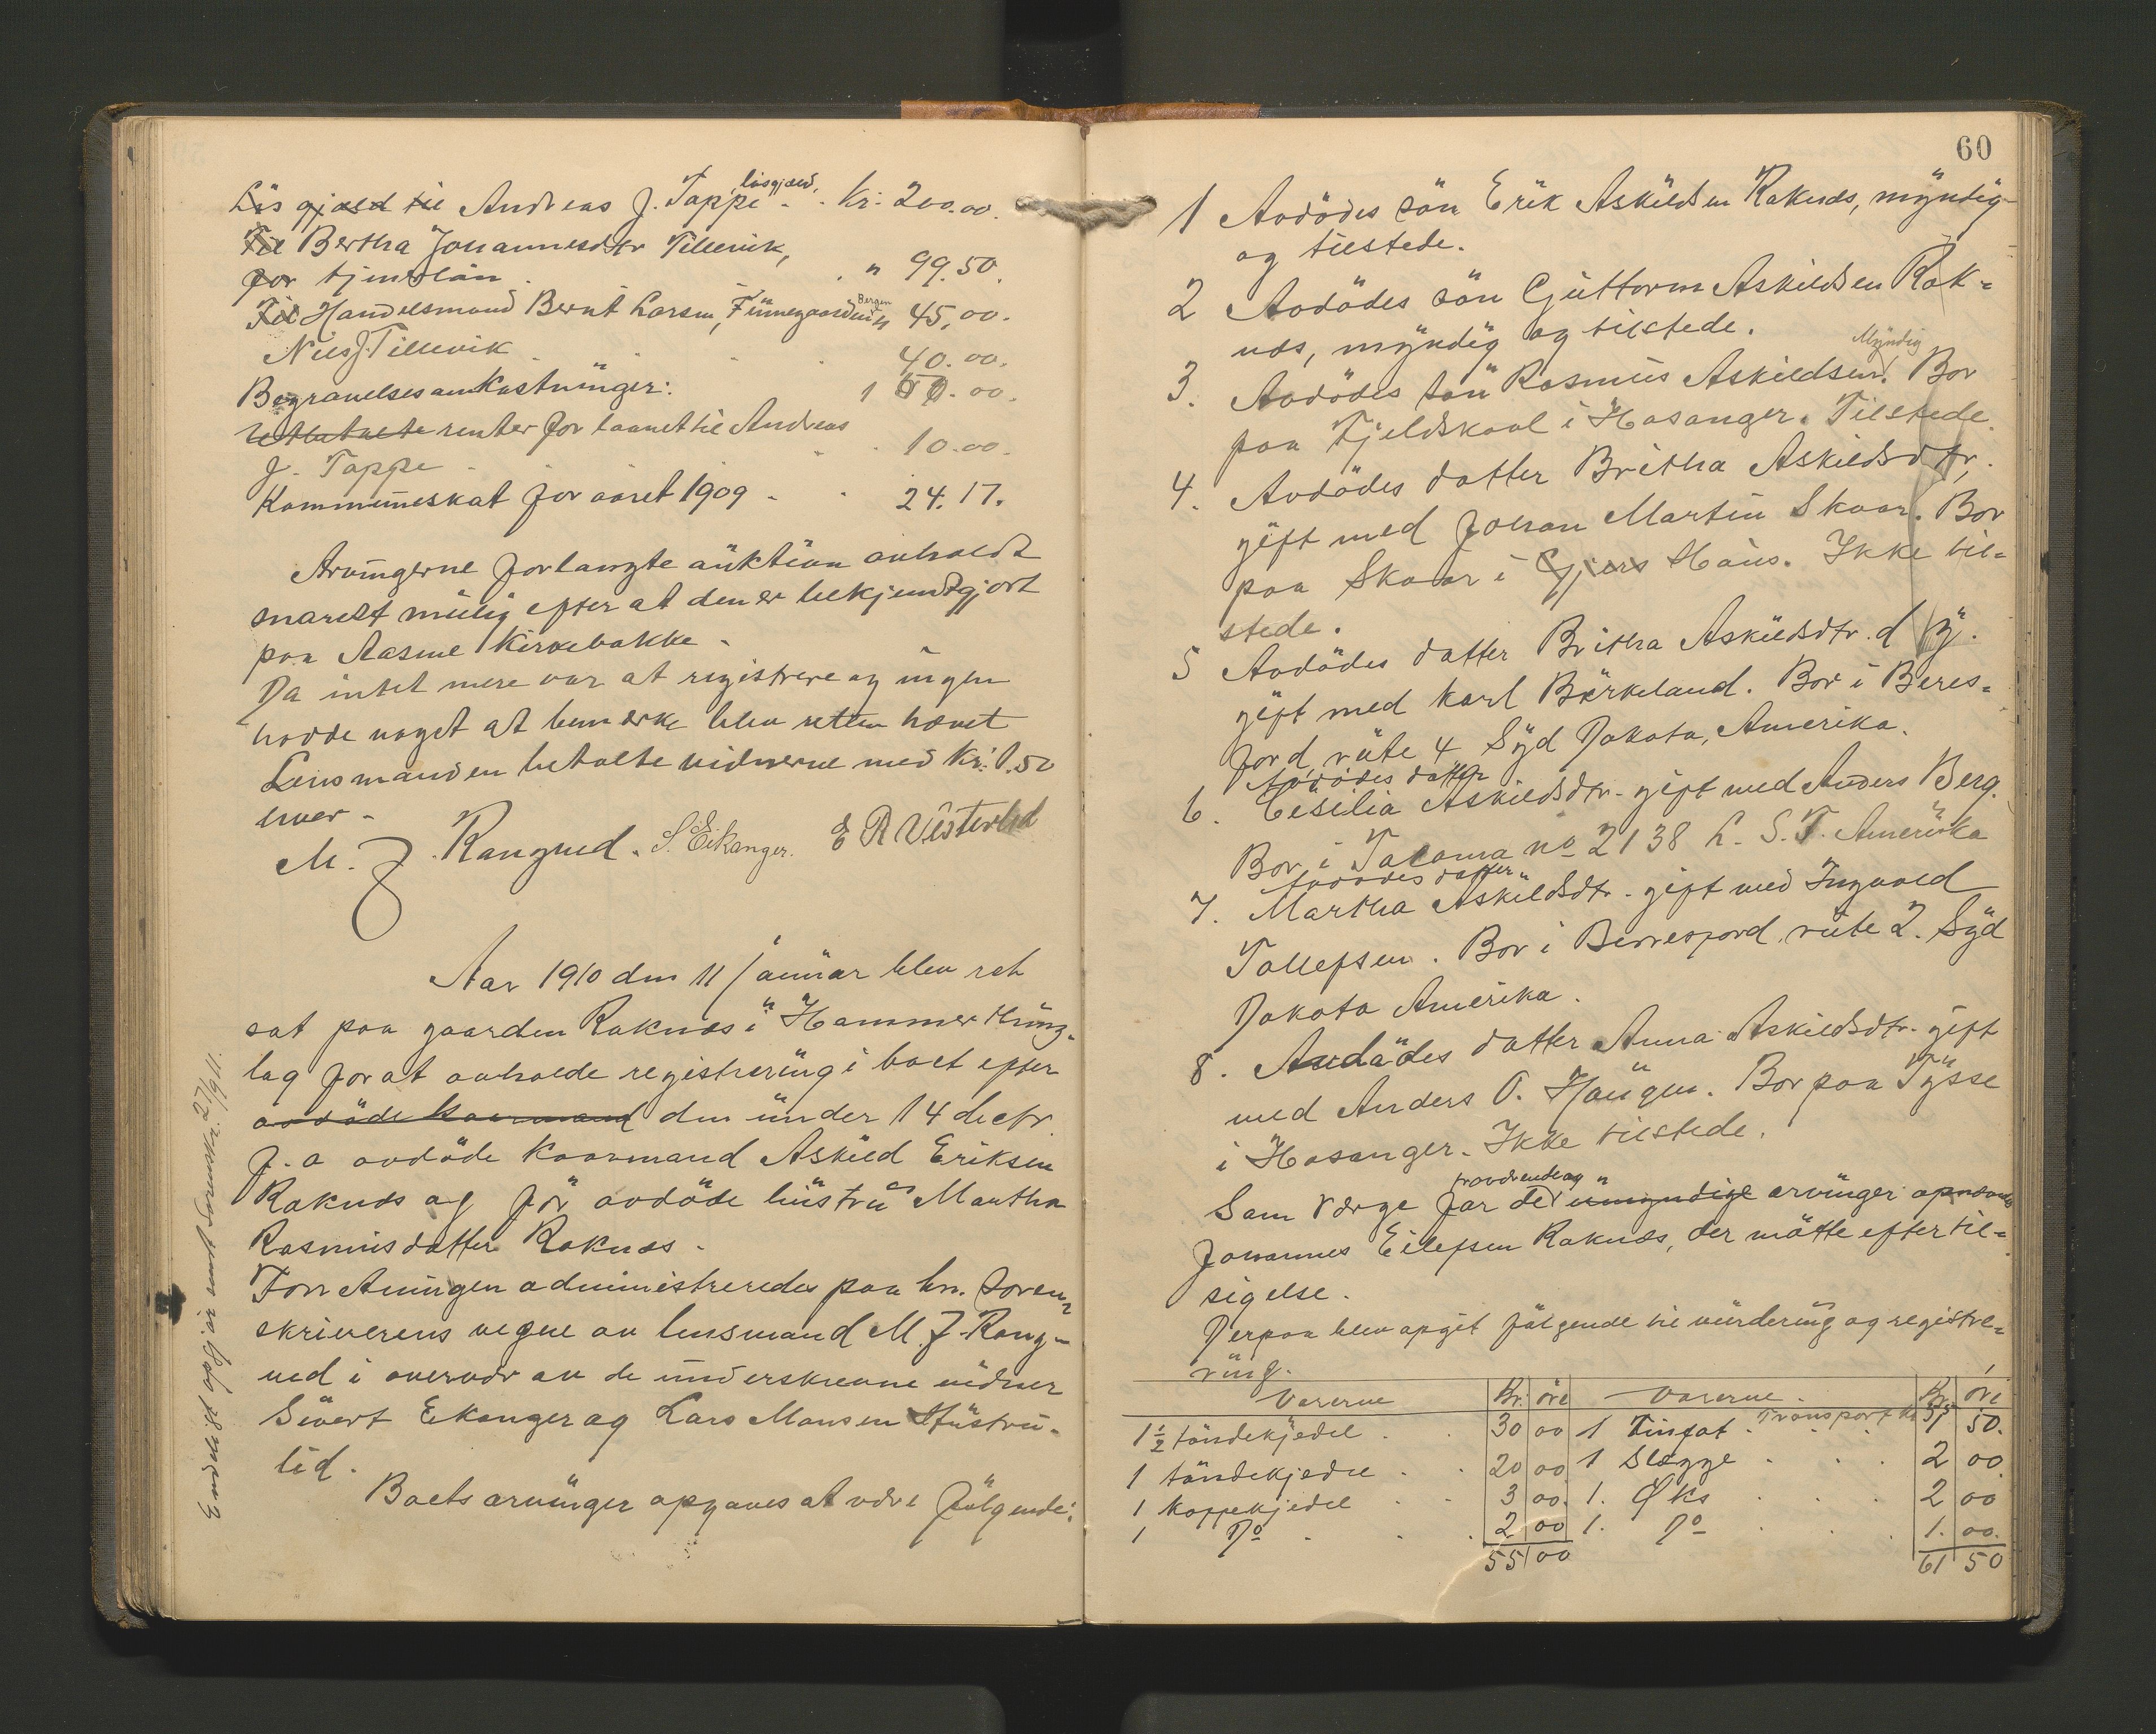 Lös gjæld til Andreas J. Tappe lösgjæld. Kr: 200.00.
Til Bertha Johannesdtr Tellevik,
for tjenslön . . " 99.50.
Til Handelsmand Bernt Larsen, Finnegaarden Bergen " 45,00.
Nils J. Tellevik . . . 40.00.
Begravelsesomkostninger: 100.00.
Utbetalte renter for laanet til Andreas
J. Tappe . . . 10.00.
Kommuneskat for aaret 1909 . . 24.17.
Arvingerne forlangte auktion avholdt
snarest mulig efter at den er bekjendtgjort
paa Aasene Kirkebakke.
Da intet mere var at registrere og ingen
hadde noget at bemerke blev retten hævet
Lensmanden betalte vidnerne med Kr: 0.50
hver.
M. J. Rangned. S. Eikanger. E R Vesterlid
Aar 1910 den 11 januar blev ret
sat paa gaarden Raknes i Hammer thing-
lag for at avholde registrering i boet efter
avdöde kaarmand den under 14 decbr.
f. a avdöde Kaarmand Askild Eriksen
Raknes og før avdöde hustru Martha
Rasmusdatter Raknes.
Forretningen administreredes paa hr. Soren-
skriverens vegne av lensmand M. J. Rang-
ned i overvær av de underskrevne vidner
Sivert Eikanger og Lars Monsen Hustru-
lid.
Boets arvinger opgaves at være følgende:
Endeligt opgjør sendt Sorenskr. 27/1 1911.
60
1 Avdödes sön Erik Askildsen Raknes, myndig
og tilstede.
2 Avdödes sön Guttorm Askildsen Rak-
nes, myndig og tilstede.
3. Avdödes sön Rasmus Askildsen. Myndig Bor
paa Fjeldskaal i Hosanger. Tilstede.
4. Avdödes datter Britha Askildsdtr.
gift med Johan Martin Skaar. Bor
paa Skaar i Gjers Haus. Ikke til-
stede.
5 Avdödes datter Britha Askildsdtr. d y.
gift med Karl Börkeland. Bor i Beres-
ford, rute 4 Syd Dakota, Amerika.
Avdödes datter
6. Cesilia Askildsdtr. gift med Anders Berg.
Bor i Tacoma no 2138 L. S. T. Amerika
Avdödes datter
7. Martha Askildsdtr. gift med Ingvald
Tollefsen. Bor i Berresford, rute 2. Syd
Dakota Amerika.
8. Avdödes datter Anna Askildsdtr. gift
med Anders O. Haugen. Bor paa Tysse
i Hosanger. Ikke tilstede.
Som værge for de fraværende og umyndige arvinger opnævntes
Johannes Eilefsen Raknes, der mötte efter til-
sigelse.
Derpaa blev opgit følgende til vurdering og registre-
ring.
Varerne Kr. öre Varerne. Kr. öre
Transport kr 55
1 1/2 töndekjedel . . 30 00 1 Tinfat . . . 1 50.
1 töndekjedel . . 20 00 1 Slægge . . . 2 00.
1 Koppekjedel . . 3 00. 1. Øks . . . 2 00
1 Do . . . 2 00 1. Do . . . 1. 00.
55 00 61 50